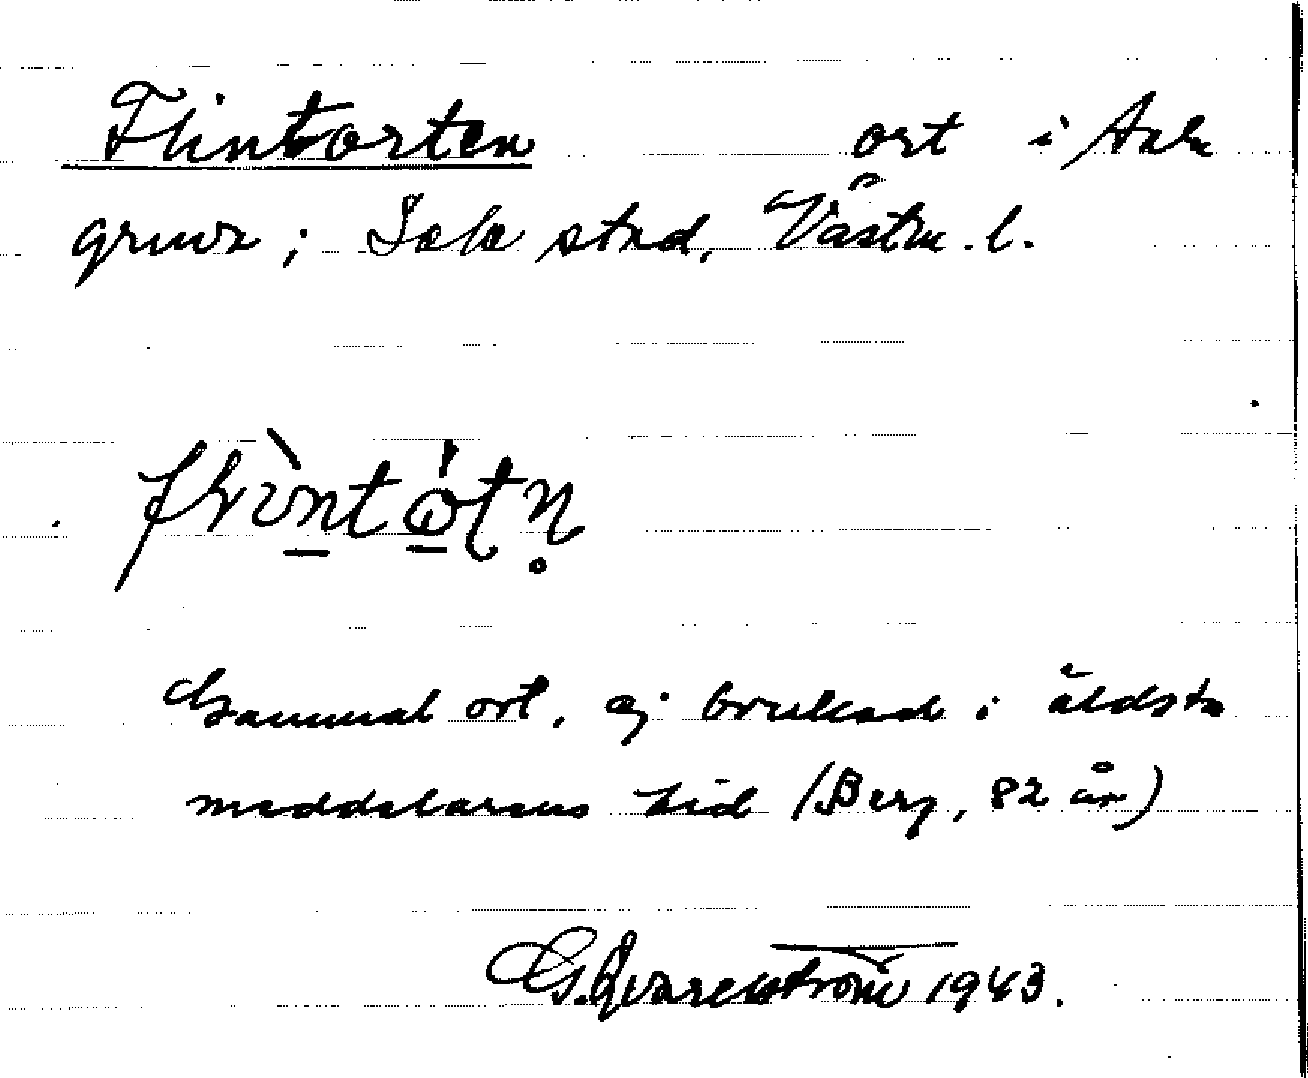 Flintorten ort i Sala
gruva; Sala stad, Västm. l.
Gammal ort, ej brukad i äldsta
meddelarens tid (Berg, 82 år)
G. Qvarnström 1943.